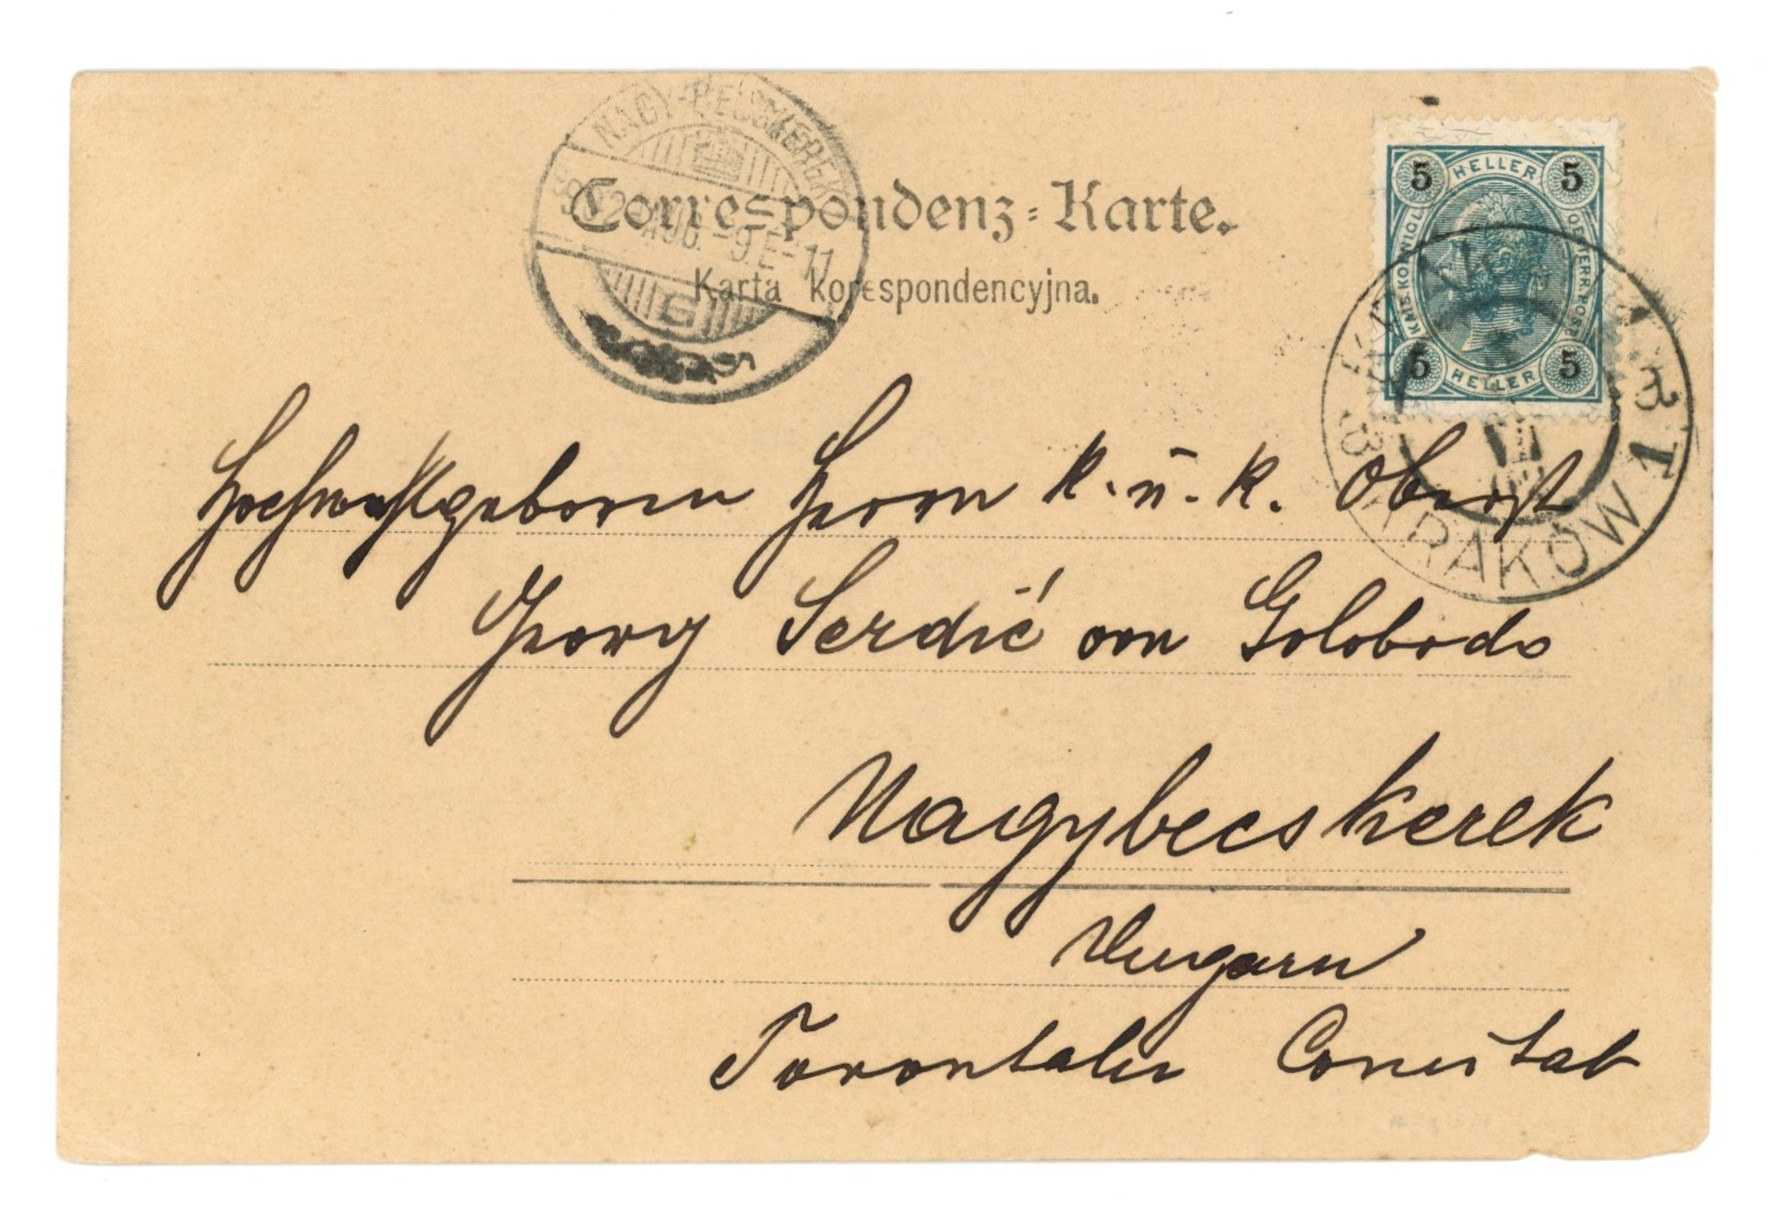 NAGY-BECSKEREK
Correspondenz-Karte.
Karta korespondencyjna.
5 HELLER 5
KAIS. KÖNIGL. OESTERR. POST
5 HELLER 5
KRAKÓW 1
Hochwohlgeboren Herrn k. u. k. Oberst
Georg Serdić von Golobrdo
Nagybecskerek
Ungarn
Torontaler Comitat